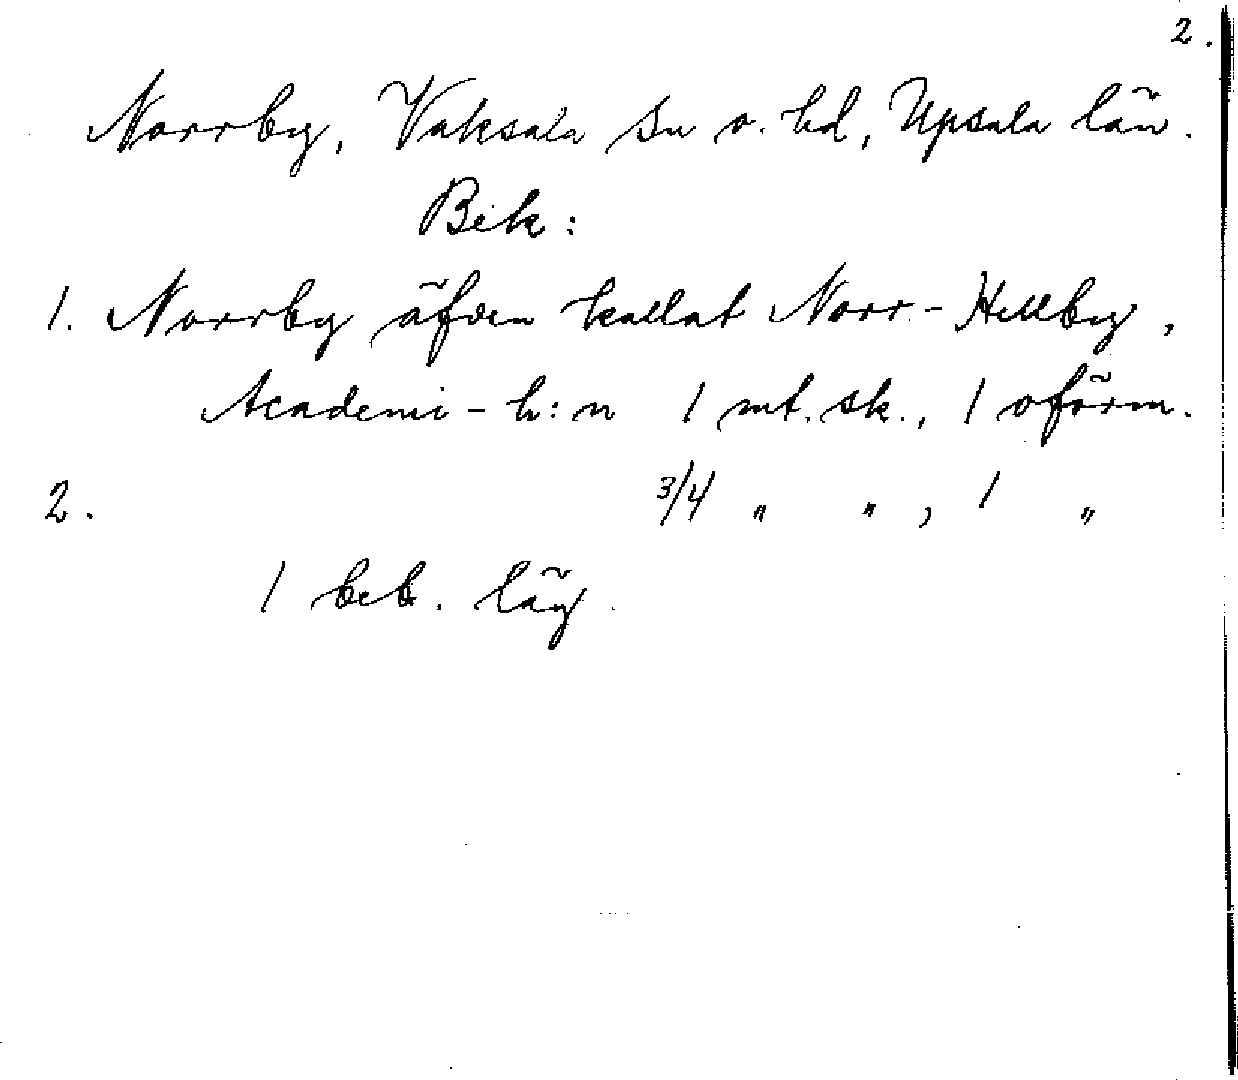 2.
Norrby, Vaksala sn o. hd, Upsala län.
Bek:
1. Norrby äfven kallat Norr-Hellby,
Academi-h:n 1 mt. sk., 1 oförm.
2. 3/4 " " , 1 "
1 beb. läg.